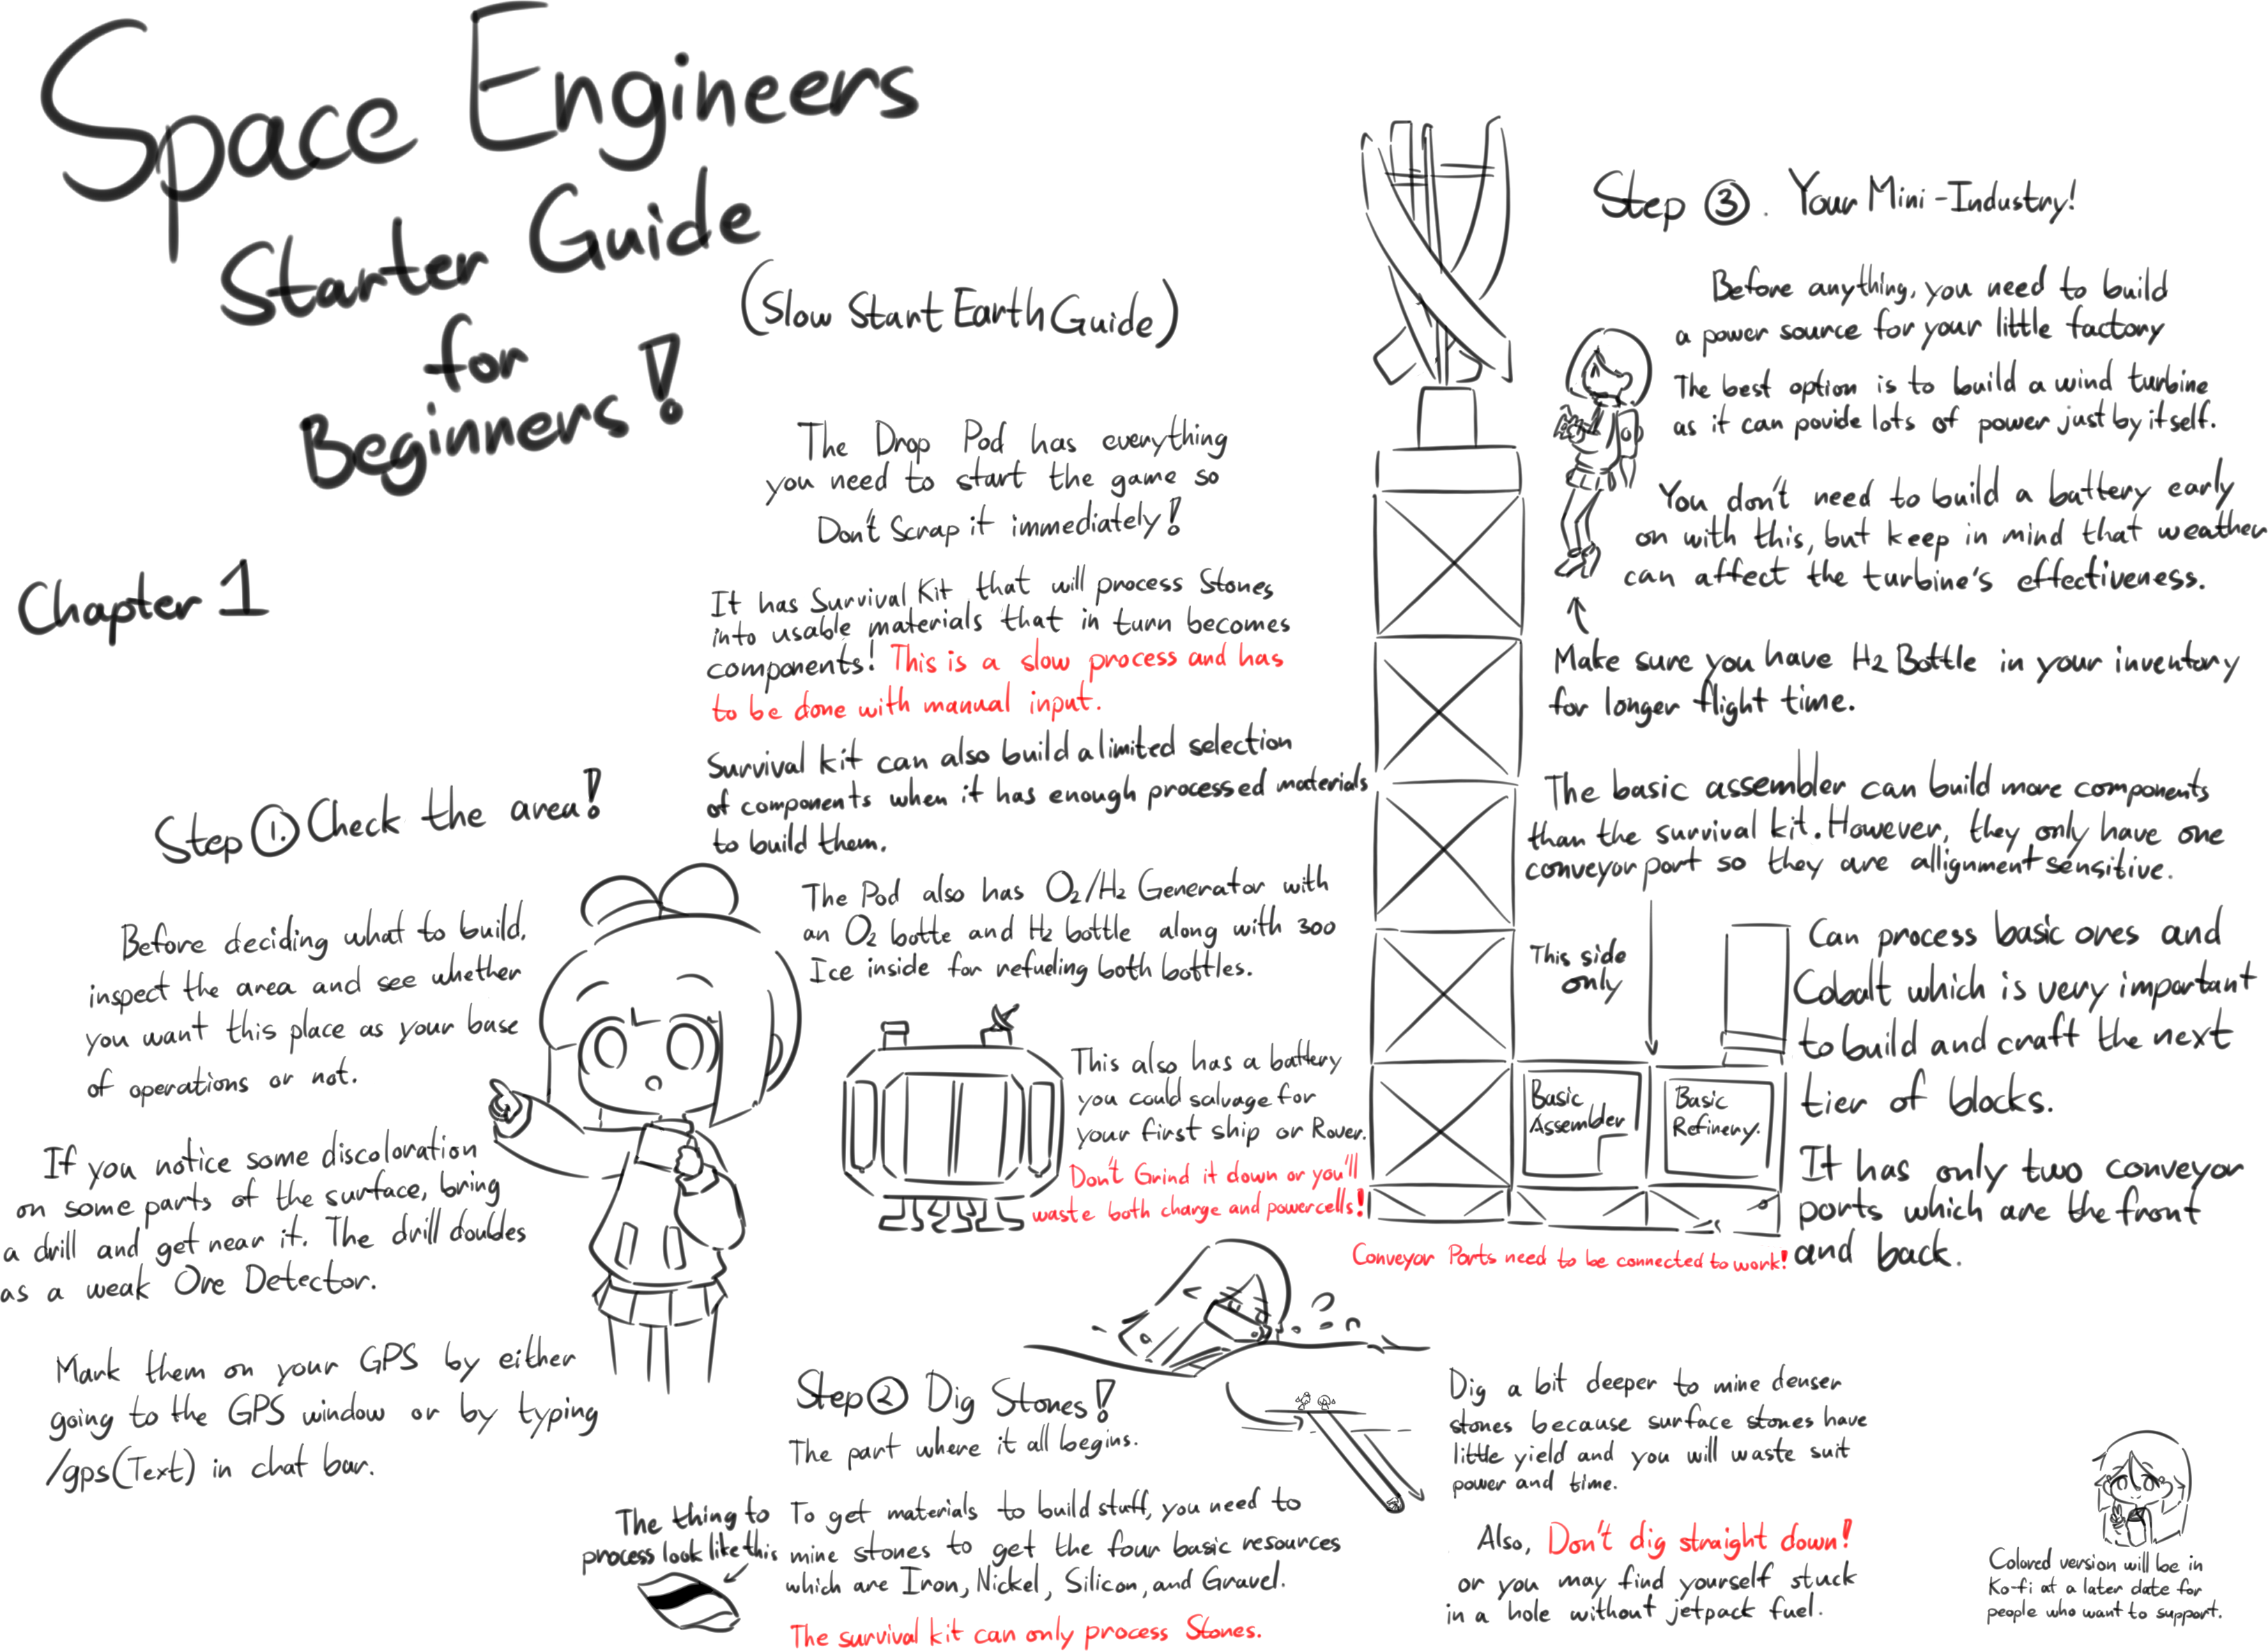 Space Engineers
Starter Guide
for
Beginners!
(Slow Start Earth Guide)
Chapter 1
Step ①. Check the area!
Before deciding what to build,
inspect the area and see whether
you want this place as your base
of operations or not.
If you notice some discoloration
on some parts of the surface, bring
a drill and get near it. The drill doubles
as a weak Ore Detector.
Mark them on your GPS by either
going to the GPS window or by typing
/gps(Text) in chat bar.
The Drop Pod has everything
you need to start the game so
Don't Scrap it immediately!
It has Survival Kit that will process Stones
into usable materials that in turn becomes
components! This is a slow process and has
to be done with manual input.
Survival kit can also build a limited selection
of components when it has enough processed materials
to build them.
The Pod also has O2/H2 Generator with
an O2 botte and H2 bottle along with 300
Ice inside for refueling both bottles.
This also has a battery
you could salvage for
your first ship or Rover.
Don't Grind it down or you'll
waste both charge and powercells!
Step ② Dig Stones!
The part where it all begins.
To get materials to build stuff, you need to
mine stones to get the four basic resources
which are Iron, Nickel, Silicon, and Gravel.
The survival kit can only process Stones.
The thing to
process look like this
Dig a bit deeper to mine denser
stones because surface stones have
little yield and you will waste suit
power and time.
Also, Don't dig straight down!
or you may find yourself stuck
in a hole without jetpack fuel.
Step ③. Your Mini-Industry!
Before anything, you need to build
a power source for your little factory
The best option is to build a wind turbine
as it can povide lots of power just by itself.
You don't need to build a battery early
on with this, but keep in mind that weather
can affect the turbine's effectiveness.
Make sure you have H2 Bottle in your inventory
for longer flight time.
The basic assembler can build more components
than the survival kit. However, they only have one
conveyor port so they are allignment sensitive.
This side
only
Basic
Assembler
Basic
Refinery.
Can process basic ores and
Cobalt which is very important
to build and craft the next
tier of blocks.
It has only two conveyor
ports which are the front
and back.
Conveyor Ports need to be connected to work!
Colored version will be in
Ko-fi at a later date for
people who want to support.